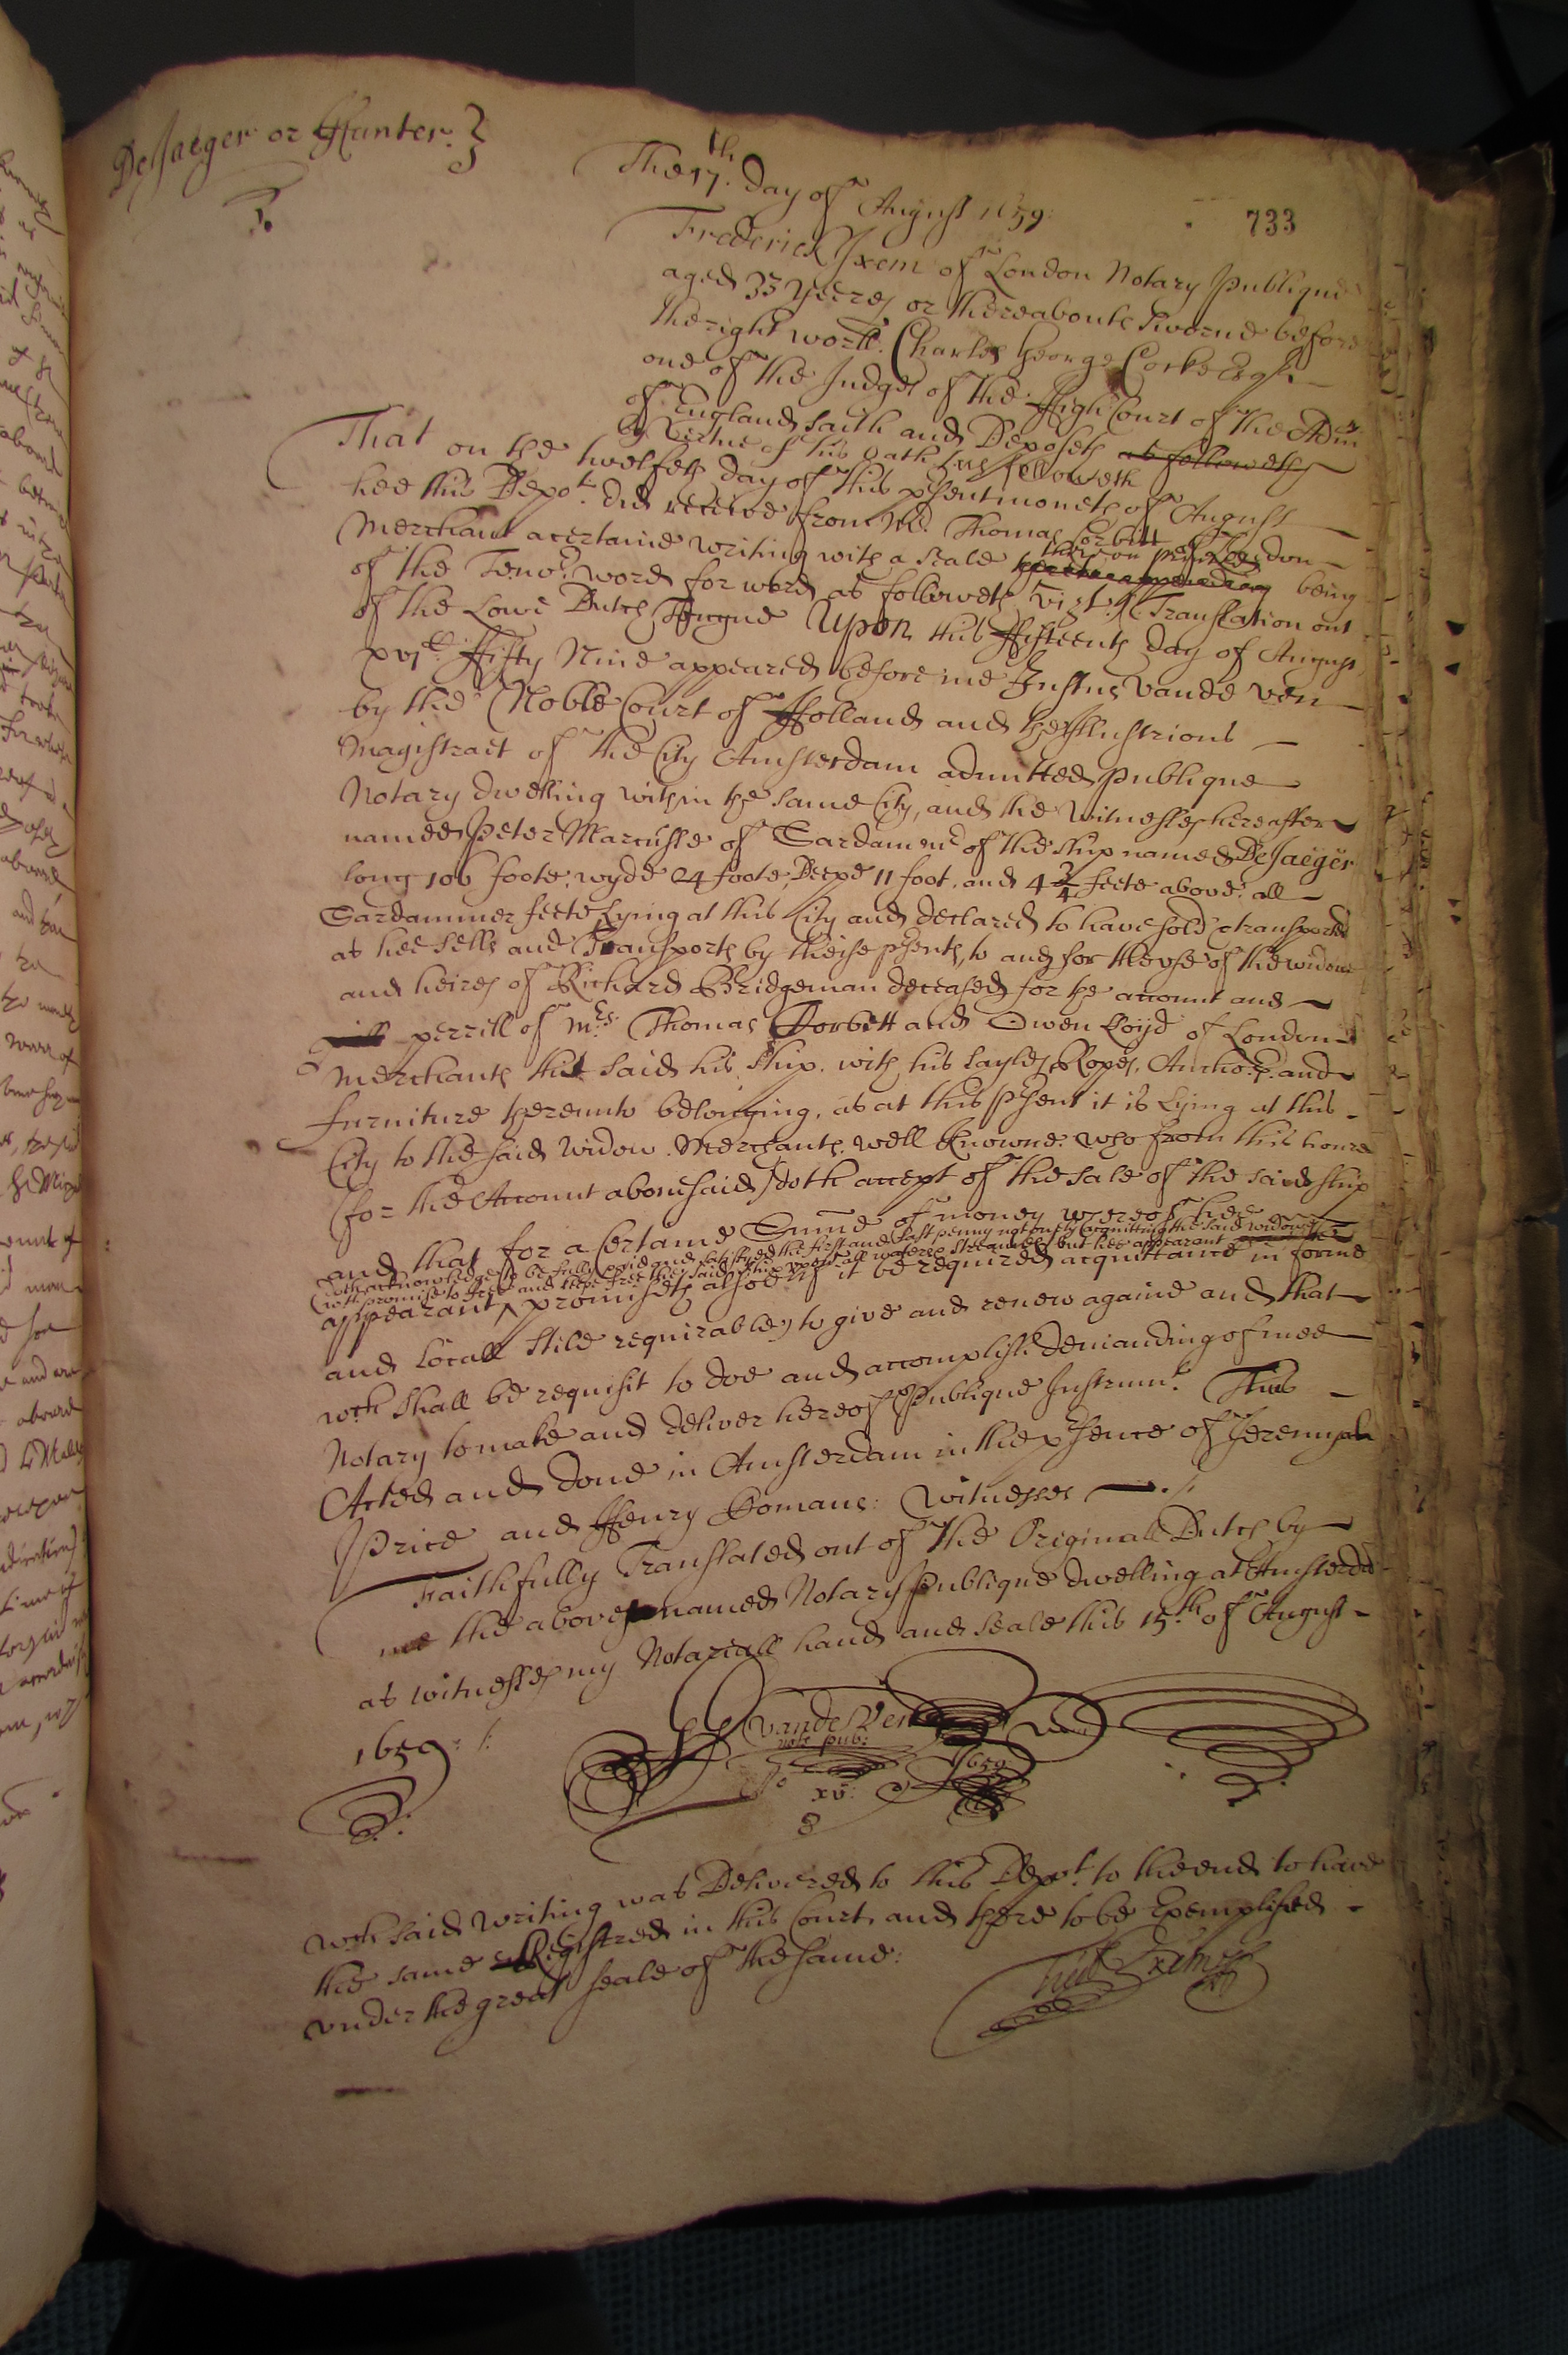 DeJaeger or Hunter. }
The 17th. day of August 1659:
1.
733
Frederick Ixem of London Notary Publique
aged 33 yeeres or thereabouts sworne before
the right worll. Charles George Cocke Esqr.
one of the Judges of the High Court of the Admlty
of England saith and Deposeth as followeth
by vertue of his oath as followeth
That on the twelfeth day of this psent moneth of August
hee this Depot. did receive from Mr. Thomas Corbett of London
Merchant a certaine writing with a seale thereon being
of the Tenor. word for word as followeth vizt. (Translation out
of the Lowe Dutch Tongue Upon this ffifteenth day of August
xvjC. ffifty Nine appeared before me Justus vande Ven
by the Noble Court of Holland and the Illustrious
Magistraet of the City Amsterdam admitted publique
Notary dwelling within the same City, and the witnesses hereafter
named Peter Marcusse of Sardam mr of the ship named DeJaeger
long 106 foote, wyde 24 foote, Deepe 11 foot. and 4 3/4 feete above. all
Sardammer feete Lying at this City and declared to have sold & transported
as hee sells and Transports by theise psents, to and for the use of the widow
and heires of Richard Bridgeman deceased for the account and
perrill of Mrs. Thomas Corbett and Owen Loijd of London
Merchants the said his ship. with his sayles, Ropes, Anchors. and
furniture thereunto belonging, as at this psent it is Lying at this
City to the said widow. Merchants. well knowne. who from this houre
(for the Account abovesaid) doth accept of the sale of the said ship
and that for a Certaine Summe of money whereof hee
doth acknowledge to be fully paid and satisfyed the first and last penny not onely acquitting the said widow
(with promise to free and these free the said ship upon all waters & streames) but hee appearant
appearant ^ promiseth alsoe if it be required acquittance in forme
and Locall stile requirable, to give and renew againe and that
wch shall be requisit to doe and accomplish demanding of mee
Notary to make and deliver hereof Publique Instrumt. Thus
Acted and done in Amsterdam in the psence of Jeremyah
Price and Henry Bomans: witnesses
Faithfully Translated out of the Originall Dutch by
me the above named Notary Publique dwelling at Amsterdam
as witnesses my Notariall hand and seale this 15th of August
1659:
J vande Ven
not: pub:
xv: 1659
8
wch said writing was Delivered to this Depot. to the end to have
the same Registred in this Court, and there to be Exemplified
under the great seale of the same:
Fred: Ixem